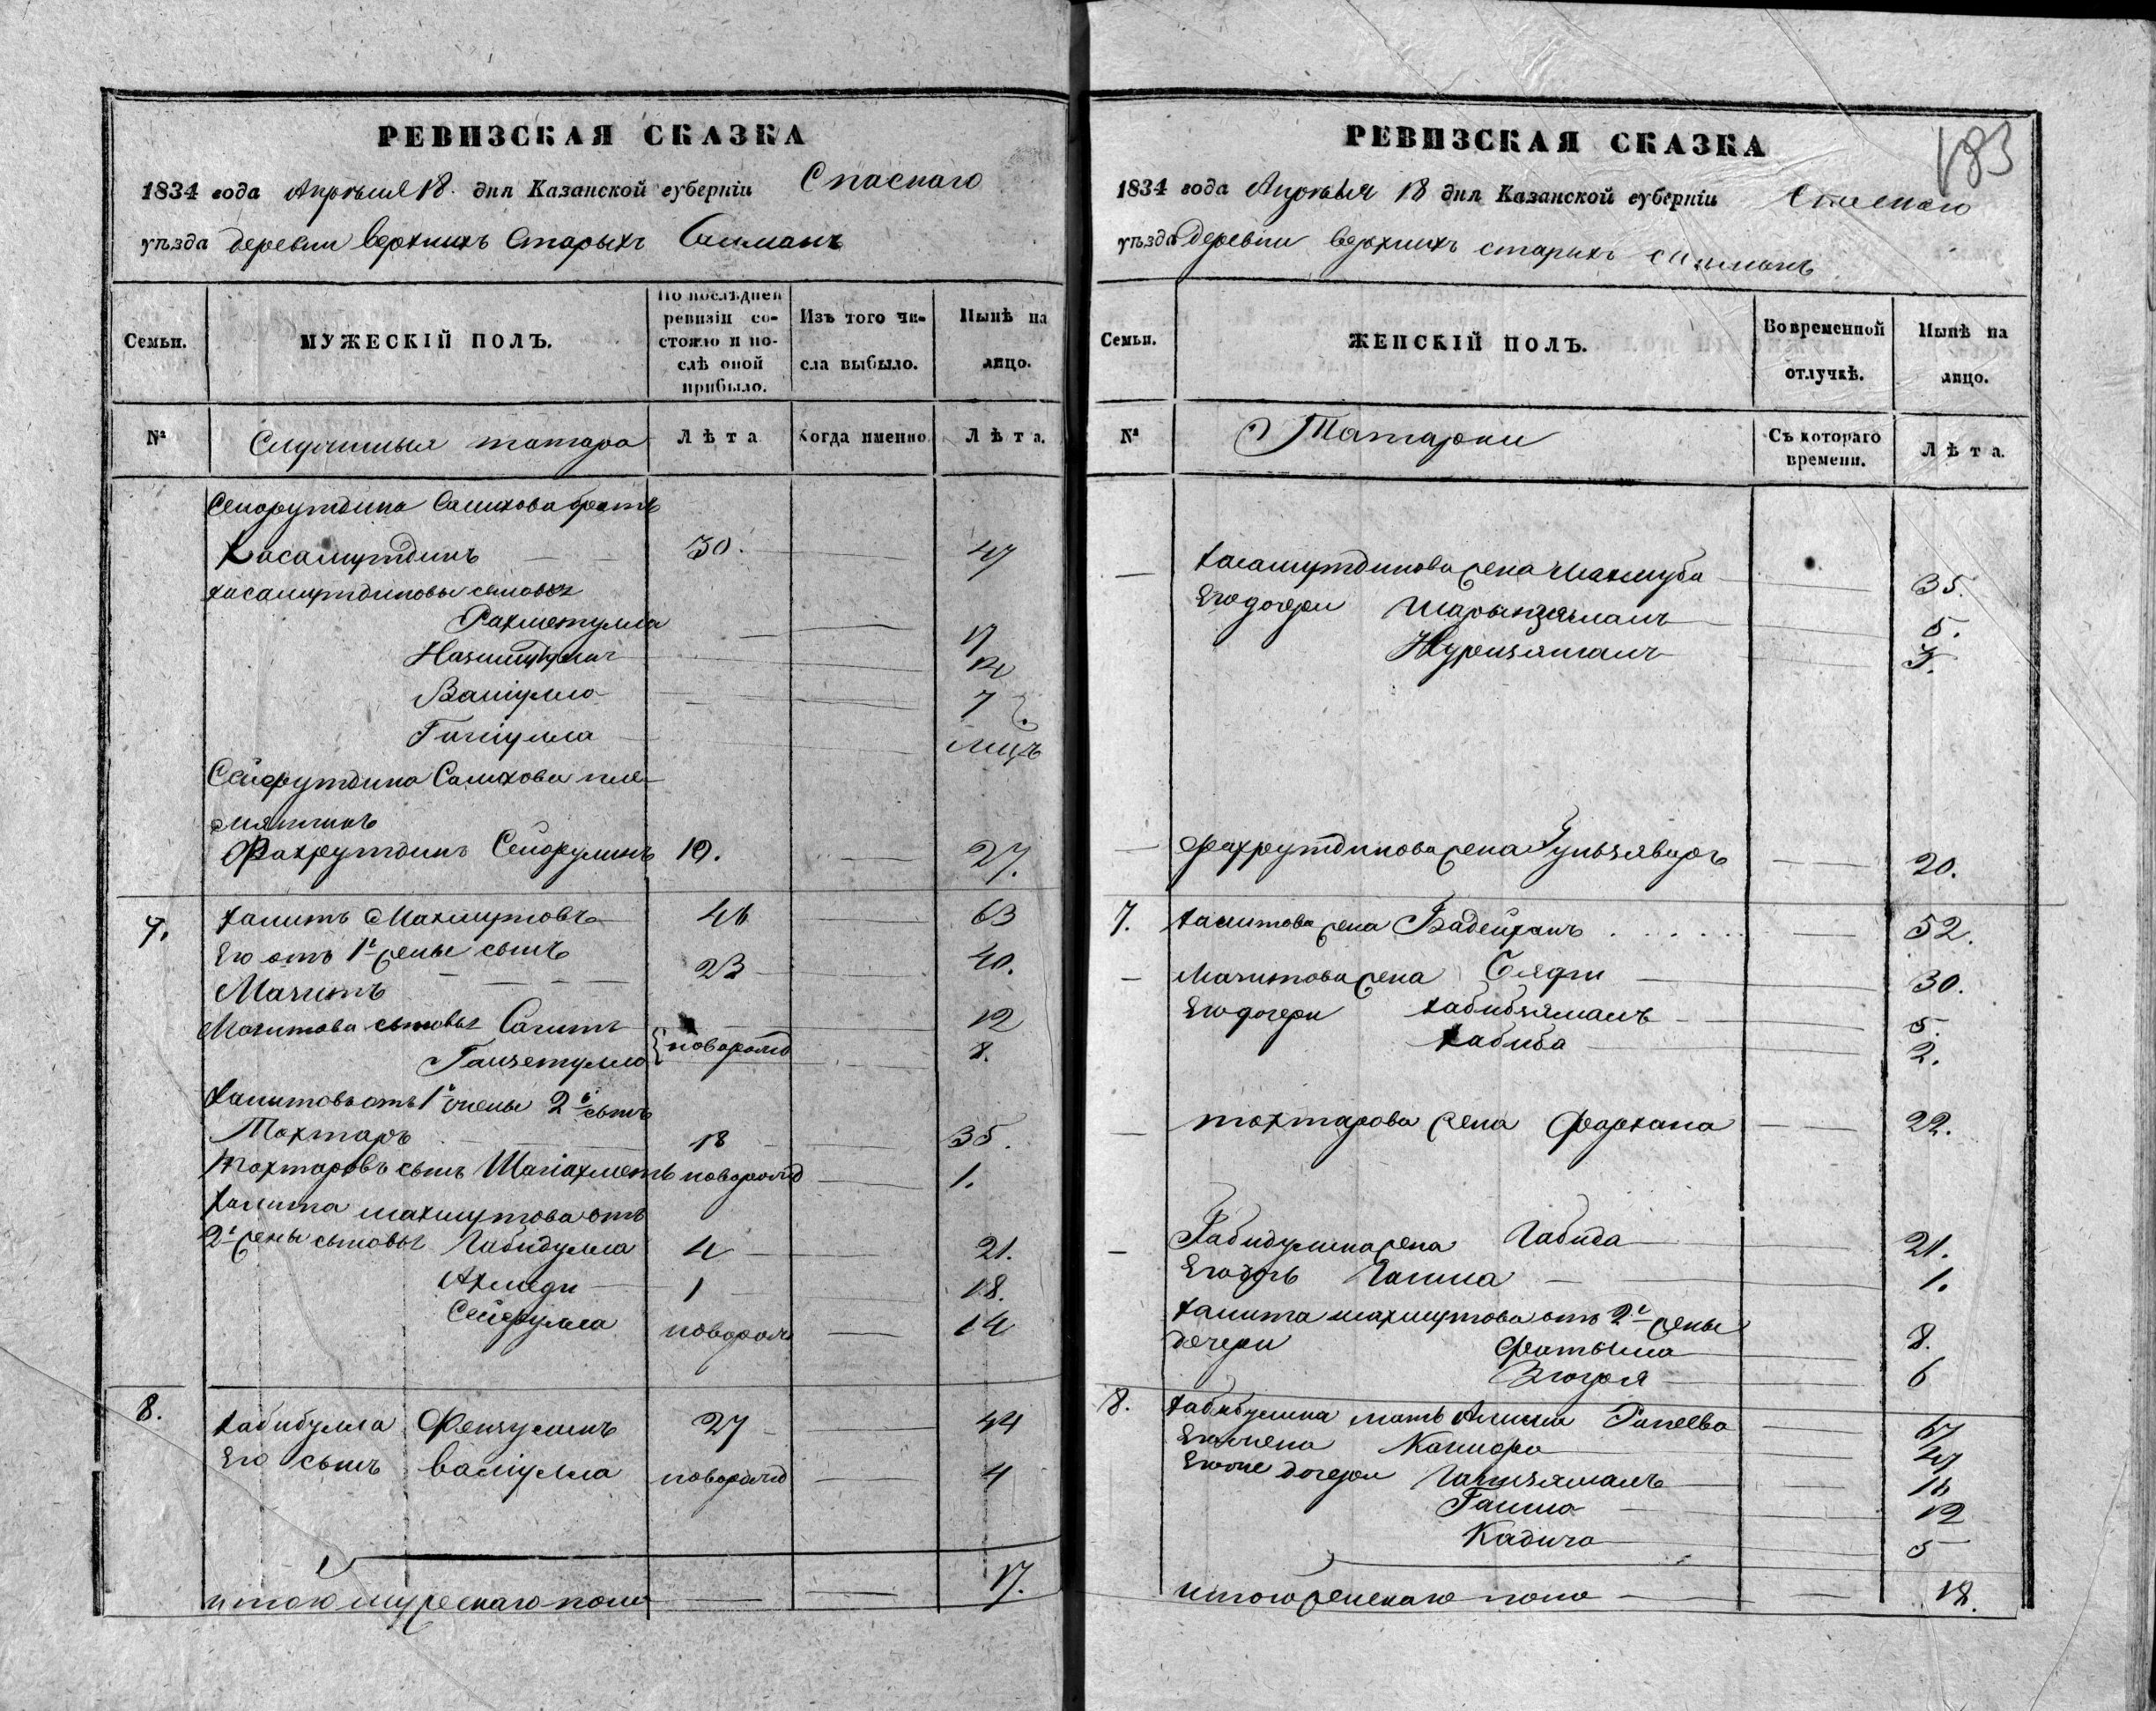 РЕВИЗСКАЯ СКАЗКА
1834 года Апреля 18. дня Казанской губерніи Спаскаго
уѣзда деревни верхнихъ Старыхъ
Семьи.
МУЖЕСКІЙ ПОЛЪ.
По послѣдней ревизіи состояло и послѣ оной прибыло.
Изъ того числа выбыло.
Нынѣ на лицо.
№
татара
Лѣта
Когда именно.
Лѣта.
Салихова братъ
Хасамутдинъ 30. 47
Хасамутдиновы сыновья
Рахметулла 17
12
Валіулла 7
Сейфутдина Салихова племянникъ
Фахрутдинъ 19. 27.
7. Хамитъ Махмутовъ 46 63
Его отъ 1й жены сынъ
Мачитъ 23 40.
Мачитова сыновья Сагитъ новорожд 12
8.
Хамитовъ отъ 1й жены 2й сынъ
Мохтаръ 18 35.
Мохтаровъ сынъ Шагіахметъ новорожд 1.
Хамита Махмутова отъ
2й жены сыновья Габидулла 4 21.
Ахмеди 1 18.
Сейфулла новорож 14
8. Хабибулла 27 44
Его сынъ Валіулла новорожд 4
итого мужескаго пола 17.
РЕВИЗСКАЯ СКАЗКА
183
1834 года Апреля 18 дня Казанской губерніи Спаскаго
уѣзда деревни верхнихъ старыхъ
Семьи.
ЖЕНСКІЙ ПОЛЪ.
Во временной отлучкѣ.
Нынѣ на лицо.
№
Татарки
Съ котораго времени.
Лѣта.
Хасамутдинова жена Махмуба 35.
Его дочери 5.
3.
Фахрутдинова жена 20.
7. Хамитова жена 52.
Мачитова жена 30.
Его дочери Хабибзямалъ 5.
Хабиба 2.
Мохтарова жена Фархана 22.
Габидуллина жена Габида 21.
Его дочь 1.
Хамита Махмутова отъ 2й жены
дочери Фатыма 8.
Зюгря 6
8. Хабибулина мать 67
Его жена 47
Его же дочери 16
Галима 12
Кадича 5
итого женскаго пола 18.